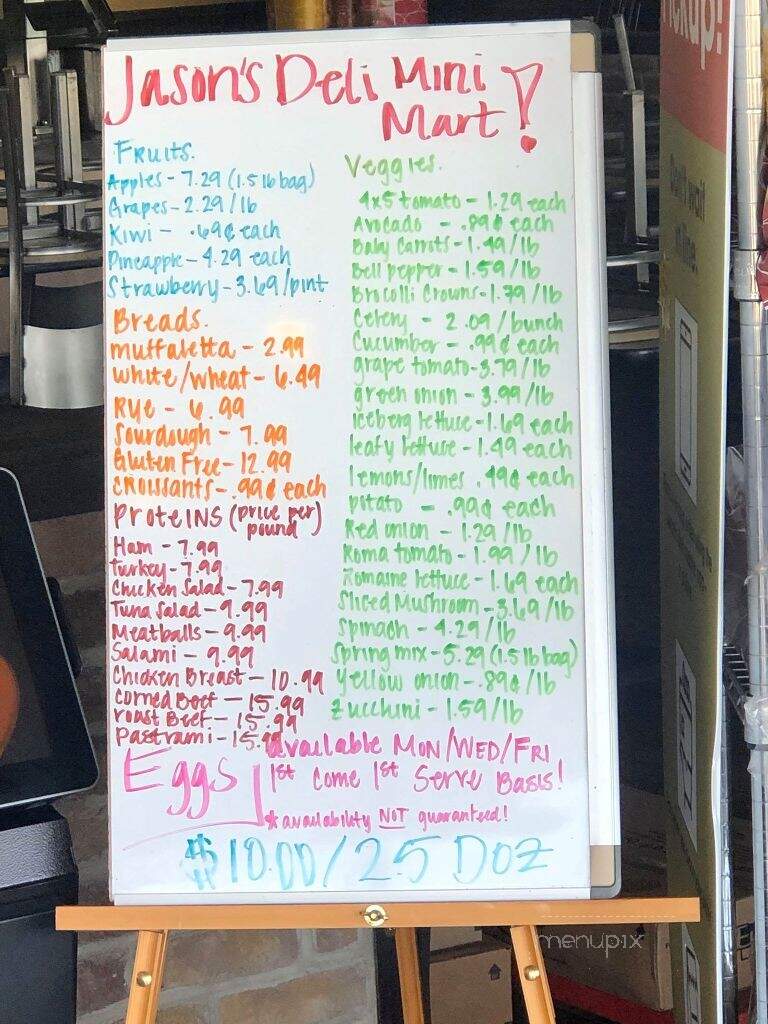 Jason's Deli Mini
Mart!
Fruits.
Apples - 7.29 (1.5 lb bag)
Grapes - 2.29/lb
Kiwi - .69¢ each
Pineapple - 4.29 each
Strawberry - 3.69/pint
Breads.
muffaletta - 2.99
white/wheat - 6.49
Rye - 6.99
Sourdough - 7.99
Gluten Free - 12.99
croissants - .99¢ each
Proteins (price per
pound)
Ham - 7.99
turkey - 7.99
Chicken Salad - 7.99
Tuna Salad - 9.99
Meatballs - 9.99
Salami - 9.99
Chicken Breast - 10.99
corned Beef - 15.99
roast Beef - 15.99
Pastrami - 15.99
Veggies.
4x5 tomato - 1.29 each
Avocado - .89¢ each
Baby Carrots - 1.49/lb
Bell pepper - 1.59/lb
Brocolli Crowns - 1.79/lb
Celery - 2.09/bunch
Cucumber - .99¢ each
grape tomato - 3.79/lb
green onion - 3.99/lb
iceberg lettuce - 1.69 each
leafy lettuce - 1.49 each
lemons/limes .49¢ each
potato - .99¢ each
Red onion - 1.29/lb
Roma tomato - 1.99/lb
Romaine lettuce - 1.69 each
Sliced Mushroom - 3.69/lb
Spinach - 4.29/lb
Spring mix - 5.29 (1.5 lb bag)
Yellow onion - .89¢/lb
Zucchini - 1.59/lb
Eggs
available Mon/Wed/Fri
1st come 1st Serve Basis!
* availability NOT guaranteed!
$10.00/2.5 Doz
Pickup!
menupix